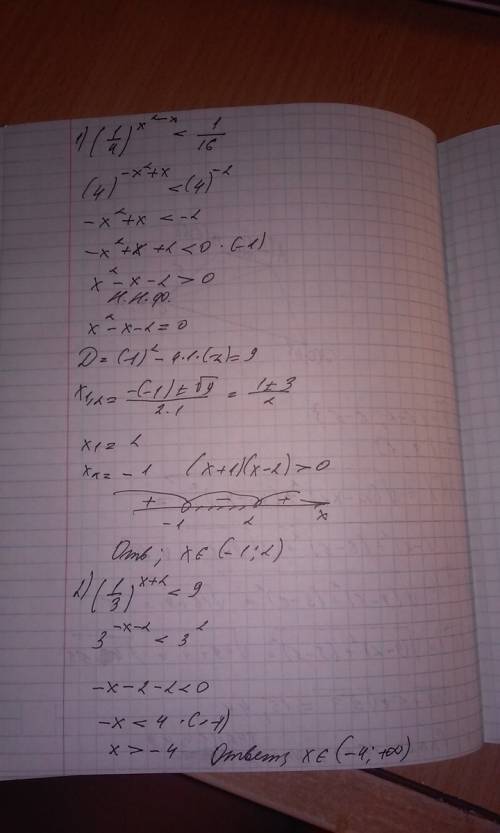 1) (1/4)^(x²-x) < 1/16
(4)^(-x²+x) < (4)^(-2)
-x²+x < -2
-x²+x+2 < 0 ·(-1)
x²-x-2 > 0
Н.Н.Ф.
x²-x-2=0
D=(-1)²-4·1·(-2)=9
x₁,₂= (-(-1)±√9)/(2·1) = (1±3)/2
x₁= 2
x₂= -1 (x+1)(x-2)>0
+ - +
-1 2 x
Отв; x∈(-1;2)
2) (1/3)^(x+2) < 9
3^(-x-2) < 3²
-x-2-2<0
-x < 4 ·(-1)
x > -4 Ответ; x∈(-4;+∞)